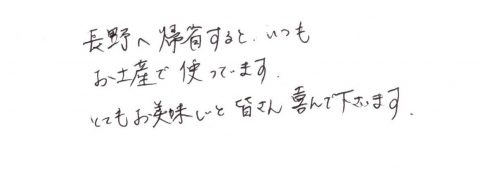 長野へ帰省すると、いつも
お土産で使っています.
とてもお美味しいと皆さん喜んで下さいます.